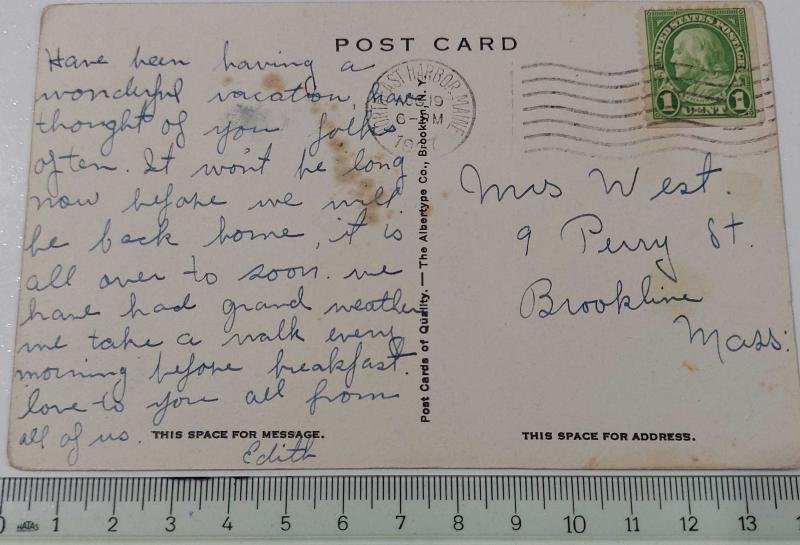 POST CARD
Have been having a
wonderful vacation, have
thought of you folks
often. It won't be long
now before we will
be back home, it is
all over to soon. we
have had grand weather
we take a walk every
morning before breakfast.
love to you all from
all of us.
Edith
THIS SPACE FOR MESSAGE.
Post Cards of Quality. — The Albertype Co., Brooklyn, N. Y.
EAST HARBOR MAINE
AUG 19
6-PM
UNITED STATES POSTAGE
1 CENT 1
Mrs West.
9 Perry St.
Brookline
Mass.
THIS SPACE FOR ADDRESS.
0 1 2 3 4 5 6 7 8 9 10 11 12 13
HATAS